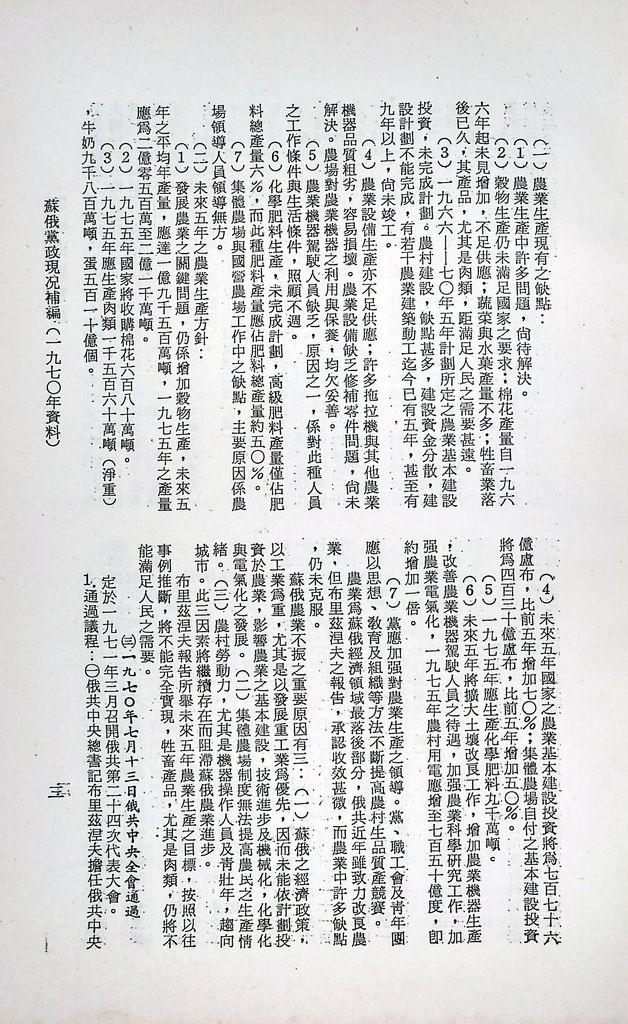 (一)農業生產現有之缺點：
(1)農業生產中許多問題，尚待解決。
(2)穀物生產仍未滿足國家之要求；棉花產量自一九六
六年起未見增加，不足供應；蔬菜與水菓產量不多；牲畜業落
後已久，其產品，尤其是肉類，距滿足人民之需要甚遠。
(3)一九六六——七〇年五年計劃所定之農業基本建設
投資，未完成計劃。農村建設，缺點甚多，建設資金分散，建
設計劃不能完成，有若干農業建築動工迄今已有五年，甚至有
九年以上，尚未竣工。
(4)農業設備生產亦不足供應；許多拖拉機與其他農業
機器品質粗劣，容易損壞。農業設備缺乏修補零件問題，尚未
解決。農場對農業機器之利用與保養，均欠妥善。
(5)農業機器駕駛人員缺乏，原因之一，係對此種人員
之工作條件與生活條件，照顧不週。
(6)化學肥料生產，未完成計劃，高級肥料產量僅佔肥
料總產量六%，而此種肥料產量應佔肥料總產量約五〇%。
(7)集體農場與國營農場工作中之缺點，主要原因係農
場領導人員領導無方。
(二)未來五年之農業生產方針：
(1)發展農業之關鍵問題，仍係增加穀物生產，未來五
年之平均年產量，應達一億九千五百萬噸，一九七五年之產量
應爲二億零五百萬至二億一千萬噸。
(2)一九七五年國家將收購棉花六百八十萬噸。
(3)一九七五年應生產肉類一千五百六十萬噸(淨重)
，牛奶九千八百萬噸，蛋五百一十億個。
蘇俄黨政現况補編(一九七〇年資料)
(4)未來五年國家之農業基本建設投資將爲七百七十六
億盧布，比前五年增加七〇%；集體農場自付之基本建設投資
將爲四百三十億盧布，比前五年增加五〇%。
(5)一九七五年應生產化學肥料九千萬噸。
(6)未來五年將擴大土壤改良工作，增加農業機器生產
，改善農業機器駕駛人員之待遇，加强農業科學研究工作，加
强農業電氣化，一九七五年農村用電應增至七百五十億度，卽
約增加一倍。
(7)黨應加强對農業生產之領導。黨、職工會及青年團
應以思想、敎育及組織等方法不斷提高農村生品質產競賽。
農業爲蘇俄經濟領域最落後部分，俄共近年雖致力改良農
業，但布里茲湼夫之報告，承認收效甚微，而農業中許多缺點
，仍未克服。
蘇俄農業不振之重要原因有三：(一)蘇俄之經濟政策，
以工業爲重，尤其是以發展重工業爲優先，因而未能依計劃投
資於農業，影響農業之基本建設，技術進步及機械化，化學化
與電氣化之發展。(二)集體農場制度無法提高農民之生產情
緒。(三)農村勞動力，尤其是機器操作人員及靑壯年，趨向
城市。此三因素將繼續存在而阻滯蘇俄農業進步。
布里茲湼夫報告所擧未來五年農業生產之目標，按照以往
事例推斷，將不能完全實現，牲畜產品，尤其是肉類，仍將不
能滿足人民之需要。
㈢一九七〇年七月十三日俄共中央全會通過
定於一九七一年三月召開俄共第二十四次代表大會。
1.通過議程：㊀俄共中央總書記布里茲湼夫擔任俄共中央